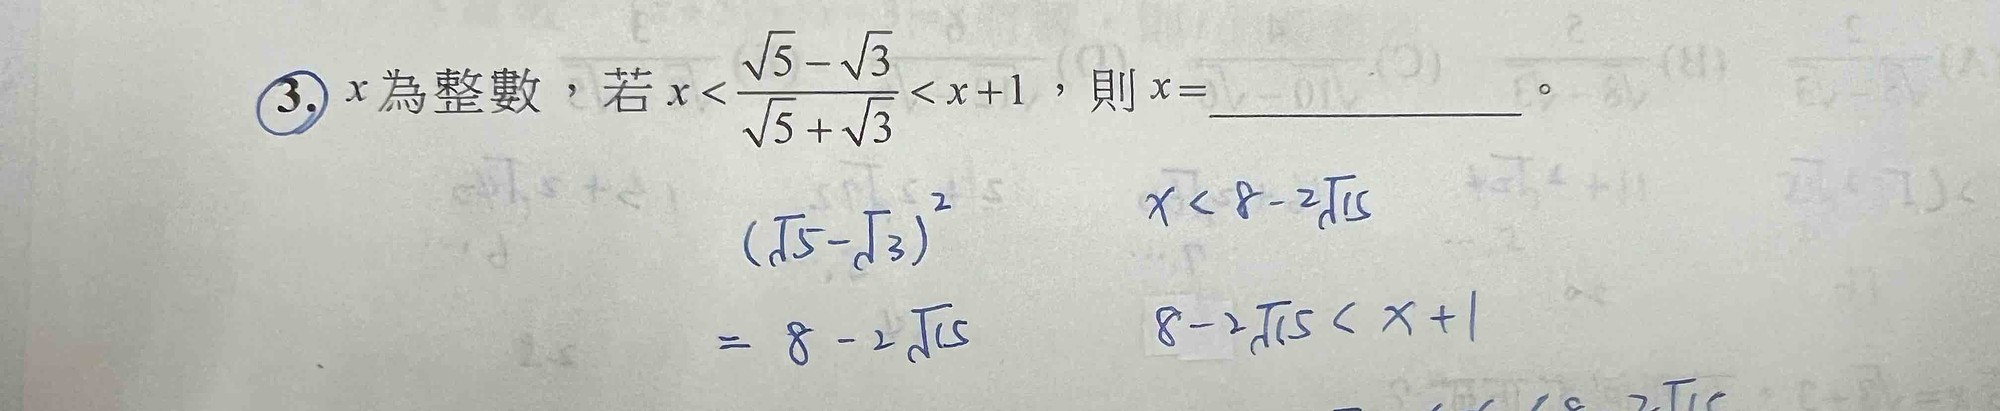 3. x 為整數，若 x < (√5 − √3)/(√5 + √3) < x + 1，則 x = ________。
(√5 − √3)²
= 8 − 2√15
x < 8 − 2√15
8 − 2√15 < x + 1